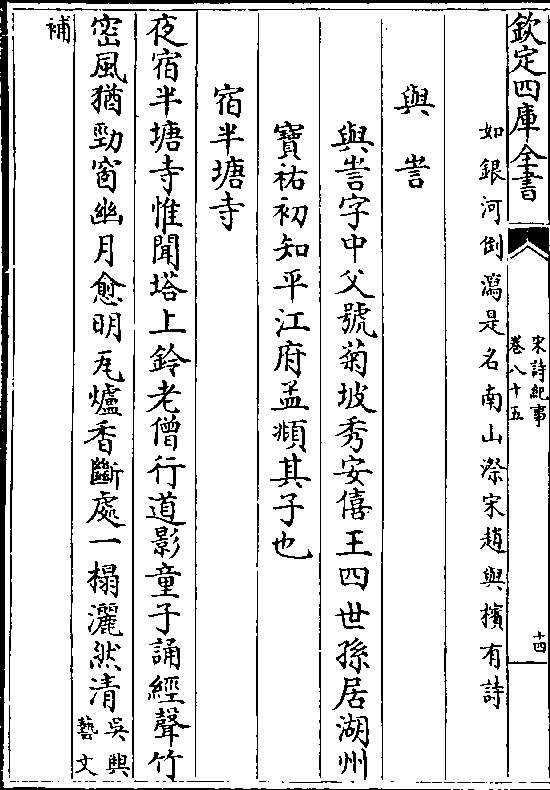 欽定四庫全書
宋詩紀事
卷八十五
十四
如銀河倒瀉是名南山漈宋趙與檳有詩
與訔
與訔字中父號菊坡秀安僖王四世孫居湖州
寶祐初知平江府孟頫其子也
宿半塘寺
夜宿半塘寺惟聞塔上鈴老僧行道影童子誦經聲竹
密風猶勁窗幽月愈明瓦爐香斷處一榻灑然清吳興
藝文
補